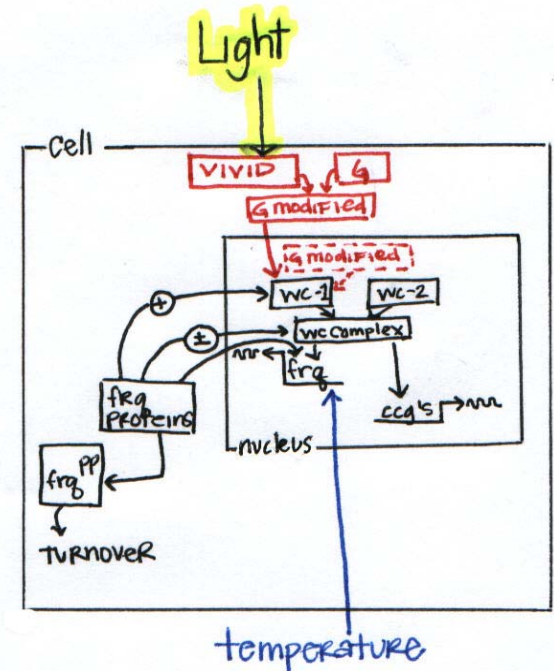 Light
cell
VIVID
G
G modified
G modified
WC-1
WC-2
+
±
WC complex
frq
ccg's
frq
PROTEINS
nucleus
frq PP
TURNOVER
temperature